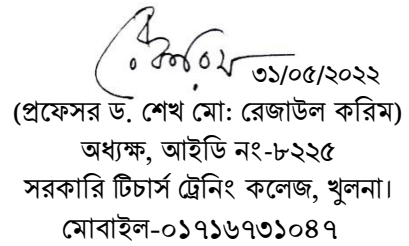 ৩১/০৫/২০২২
(প্রফেসর ড. শেখ মো: রেজাউল করিম)
অধ্যক্ষ, আইডি নং-৮২২৫
সরকারি টিচার্স ট্রেনিং কলেজ, খুলনা।
মোবাইল-০১৭১৬৭৩১০৪৭